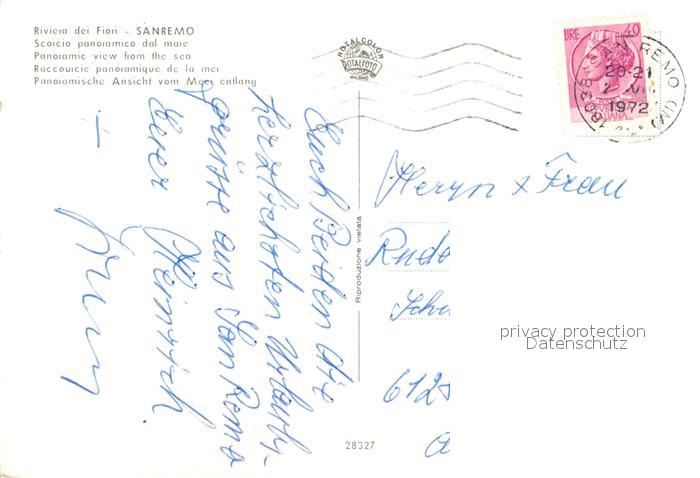 Riviera dei Fiori - SANREMO
Scorcio panoramico dal mare
Panoramic view from the sea
Raccourcie panoramique de la mer
Panoramische Ansicht vom Meer entlang
ROTALCOLOR
ROTALFOTO
MILANO
LIRE 40
ITALIANA
18038 SAN REMO (IM)
20-21
1972
Euch Beiden die
herzlichsten Urlaub-
grüsse aus San Remo
Euer Heinrich
Riproduzione vietata
Herrn + Frau
Rudo
Schu
612
28327
privacy protection
Datenschutz